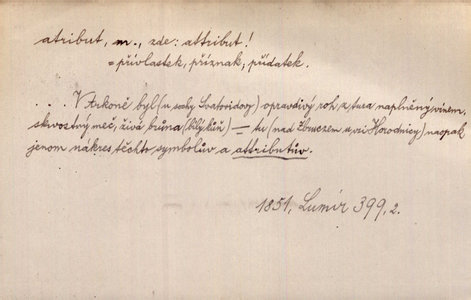 atribut, m., zde: attribut!
= přívlastek, příznak, přídatek.
. . . V Arkoně byl (u sochy Svatovidovy) opravdivý roh, z tura naplněný vínem,
skvostný meč, živá brůna (bílý kůň) — tu (nad Zbruczem u vsi Horodnicy) naopak
jenom nákres těchto symbolův a attributův.
1851, Lumír 399, 2.